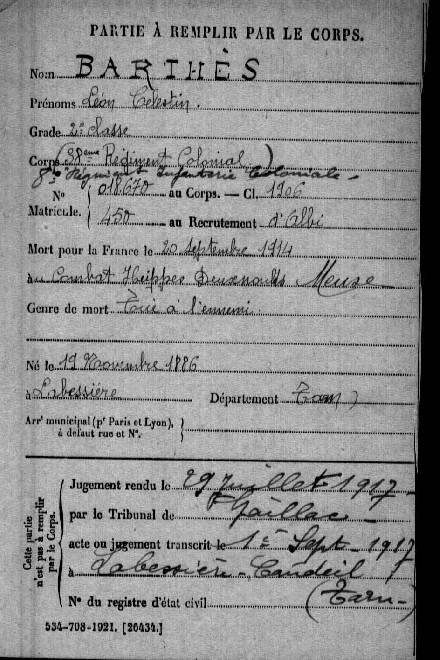 PARTIE À REMPLIR PAR LE CORPS.
Nom BARTHÈS
Prénoms Léon Célestin.
Grade 2e classe
Corps (38eme Régiment Colonial)
8me Régiment Infanterie Coloniale -
No 018670 au Corps. — Cl. 1906
Matricule.
450 au Recrutement d'Albi
Mort pour la France le 20 septembre 1914
au Combat Heippes Deuxnouds Meuse
Genre de mort Tué à l'ennemi.
Né le 19 Novembre 1886
à Labessière Département Tarn
Arrt municipal (pr Paris et Lyon),
à défaut rue et No.
Cette partie
n'est pas à remplir
par le Corps.
Jugement rendu le 29 juillet 1917
par le Tribunal de Gaillac
acte ou jugement transcrit le 1er Sept. 1917
à Labessière Candeil
(Tarn)
No du registre d'état civil
534-708-1921. [26434.]